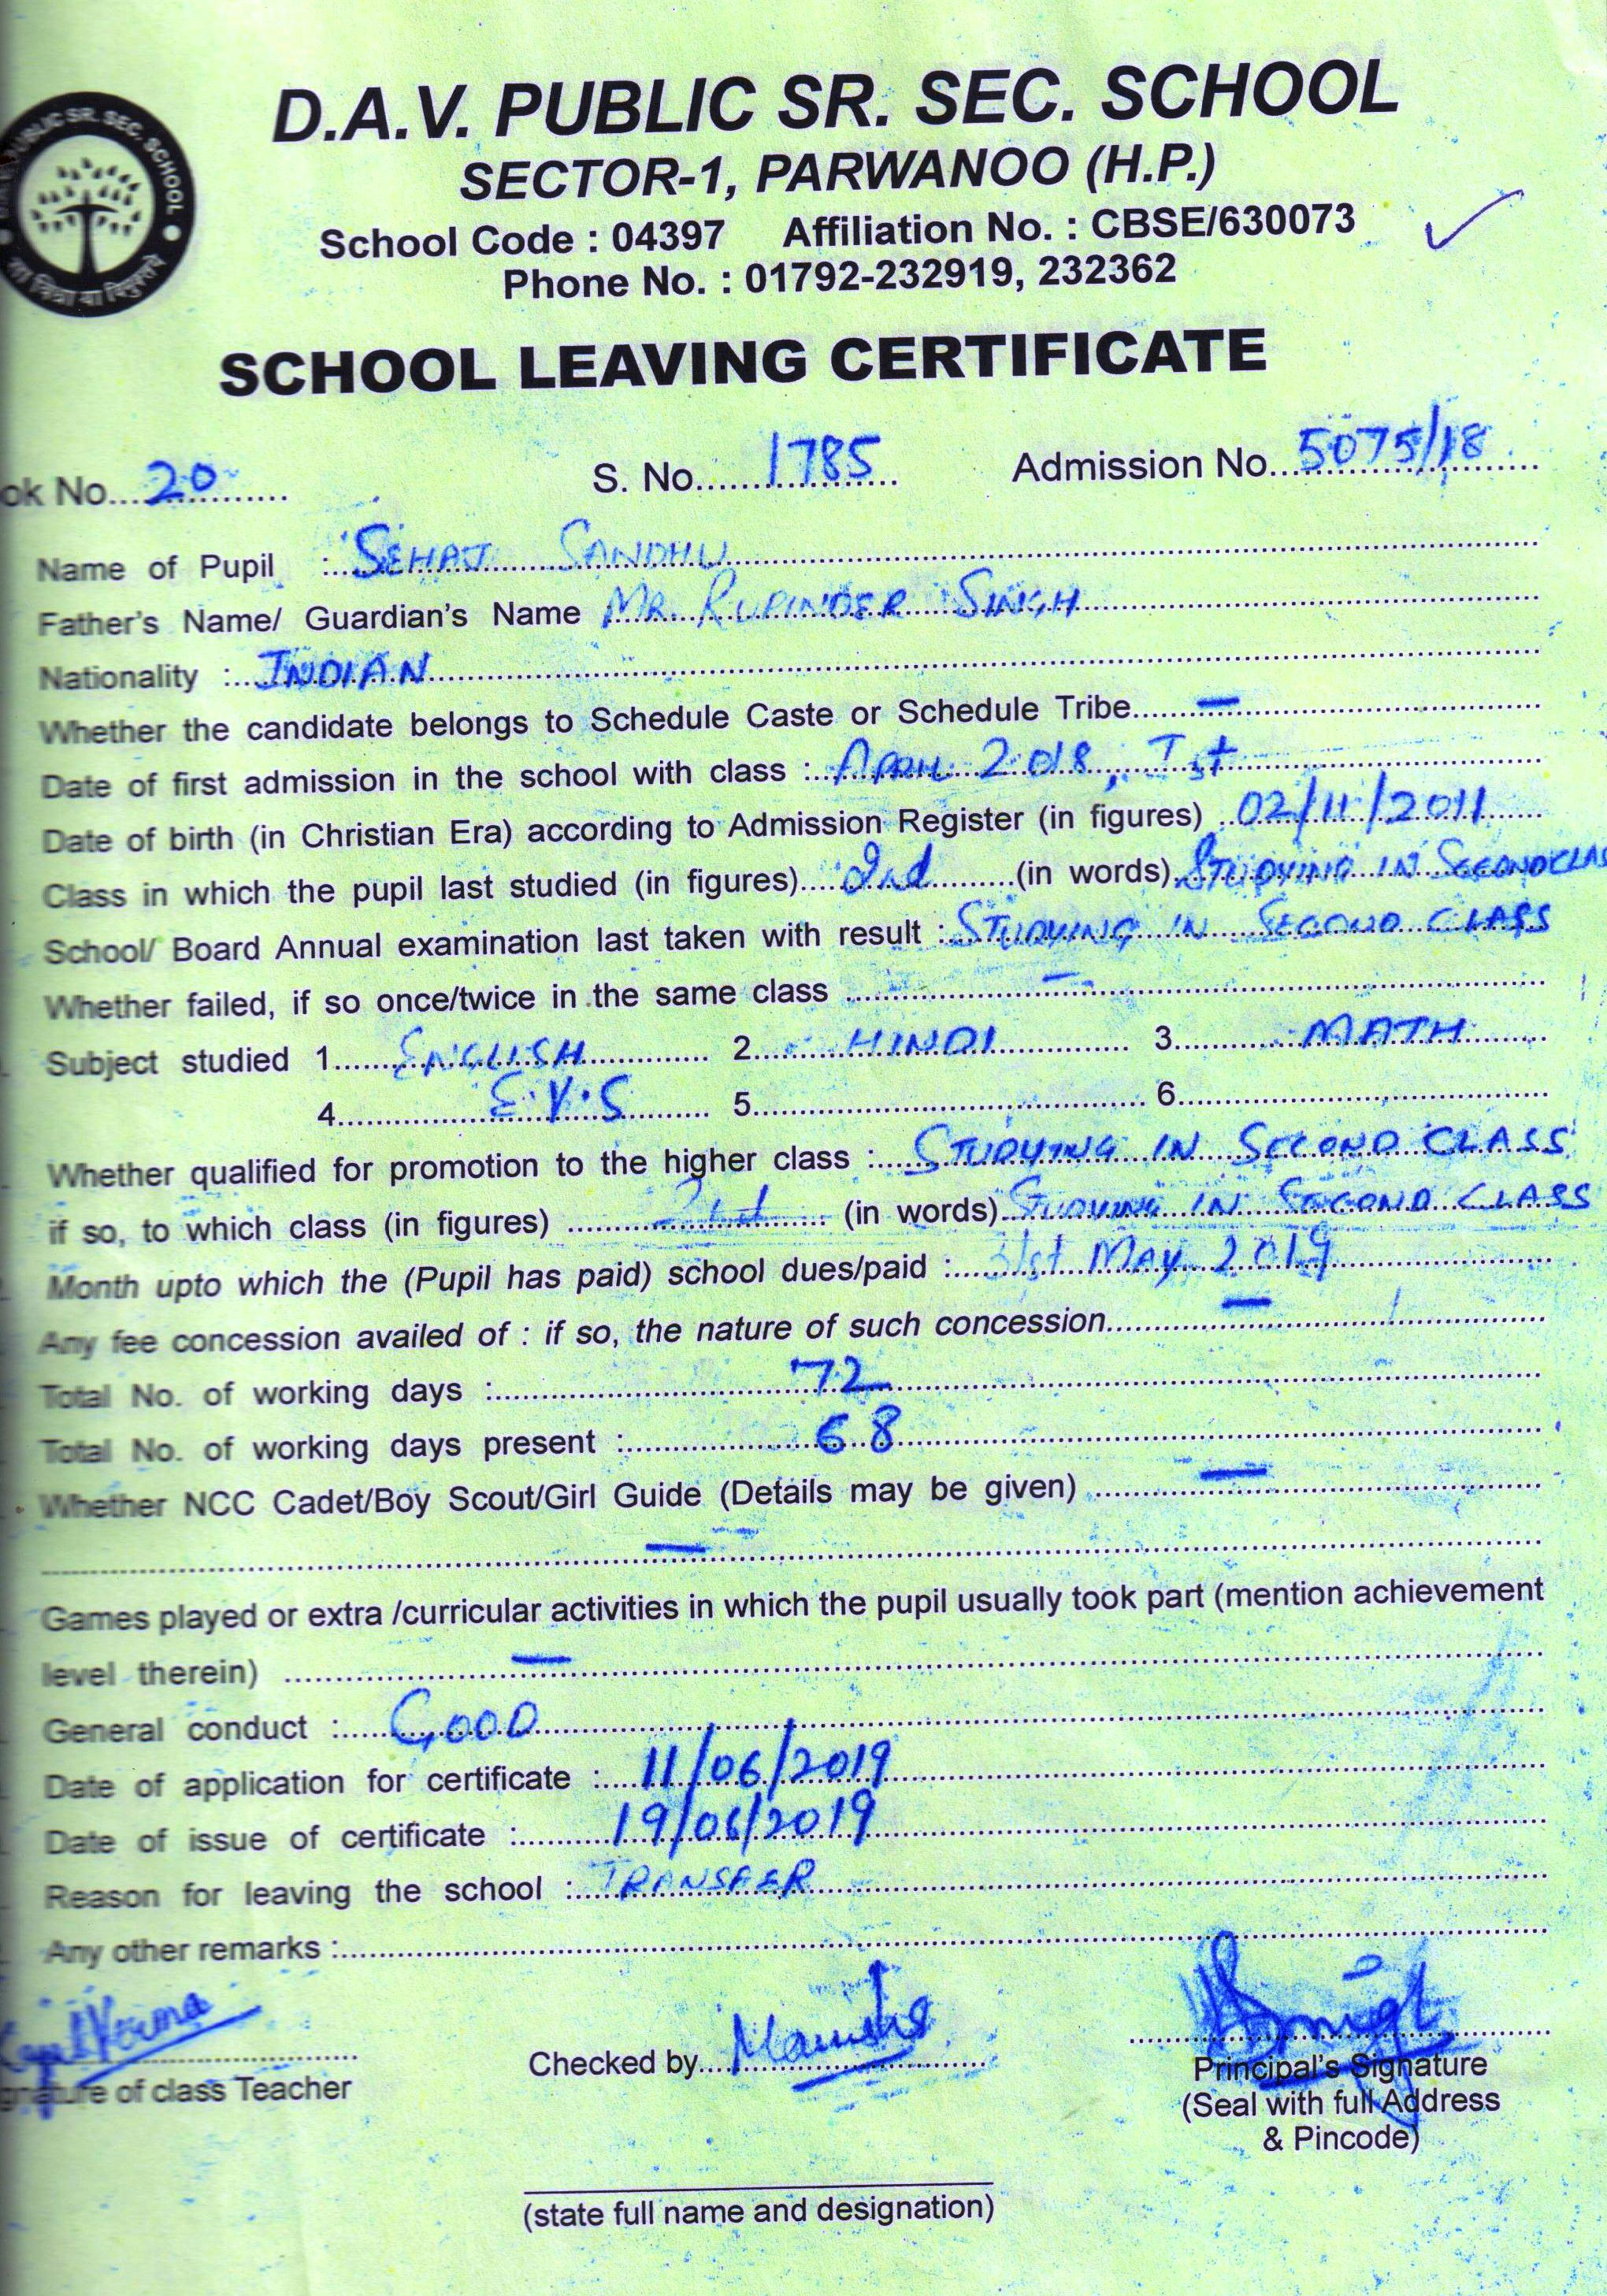 D.A.V. PUBLIC SR. SEC. SCHOOL
SECTOR-1, PARWANOO (H.P.)
School Code : 04397 Affiliation No. : CBSE/630073
Phone No. : 01792-232919, 232362
PUBLIC SR. SEC. SCHOOL
SCHOOL LEAVING CERTIFICATE
ok No....20............ S. No.....1785............ Admission No....5075/18............
Name of Pupil :...SEHAJ SANDHU............
Father's Name/ Guardian's Name MR. RUPINDER SINGH............
Nationality :...INDIAN............
Whether the candidate belongs to Schedule Caste or Schedule Tribe......—............
Date of first admission in the school with class :...APRIL 2018, Ist............
Date of birth (in Christian Era) according to Admission Register (in figures) ...02/11/2011......
Class in which the pupil last studied (in figures)....2nd.........(in words)..STUDYING IN SECOND CLAS
School/ Board Annual examination last taken with result :..STUDYING IN SECOND CLASS
Whether failed, if so once/twice in the same class ............—............
Subject studied 1......ENGLISH............ 2......HINDI............ 3......MATH......
4............E.V.S......... 5........................ 6........................
Whether qualified for promotion to the higher class :....STUDYING IN SECOND CLASS
if so, to which class (in figures) .........2nd......... (in words)..STUDYING IN SECOND CLASS
Month upto which the (Pupil has paid) school dues/paid :...31st MAY 2019............
Any fee concession availed of : if so, the nature of such concession.........—............
Total No. of working days :............72............
Total No. of working days present :............68............
Whether NCC Cadet/Boy Scout/Girl Guide (Details may be given) .........—............
............—............
Games played or extra /curricular activities in which the pupil usually took part (mention achievement
level therein) ............—............
General conduct :...GOOD............
Date of application for certificate :...11/06/2019............
Date of issue of certificate :......19/06/2019............
Reason for leaving the school :..TRANSFER............
Any other remarks :........................
Checked by...Manisha............
gnature of class Teacher
Principal's Signature
(Seal with full Address
& Pincode)
(state full name and designation)